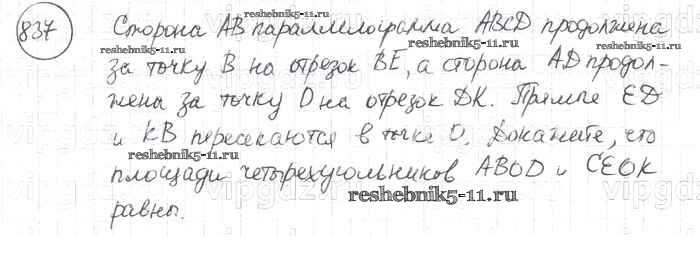 837 Сторона AB параллелограмма ABCD продолжена
reshebnik5-11.ru
reshebnik5-11.ru
за точку B на отрезок BE, а сторона AD продол-
reshebnik5-11.ru
жена за точку D на отрезок DK. Прямые ED
и KB пересекаются в точке O. Докажите, что
reshebnik5-11.ru
площади четырехугольников ABOD и CEOK
reshebnik5-11.ru
равны.